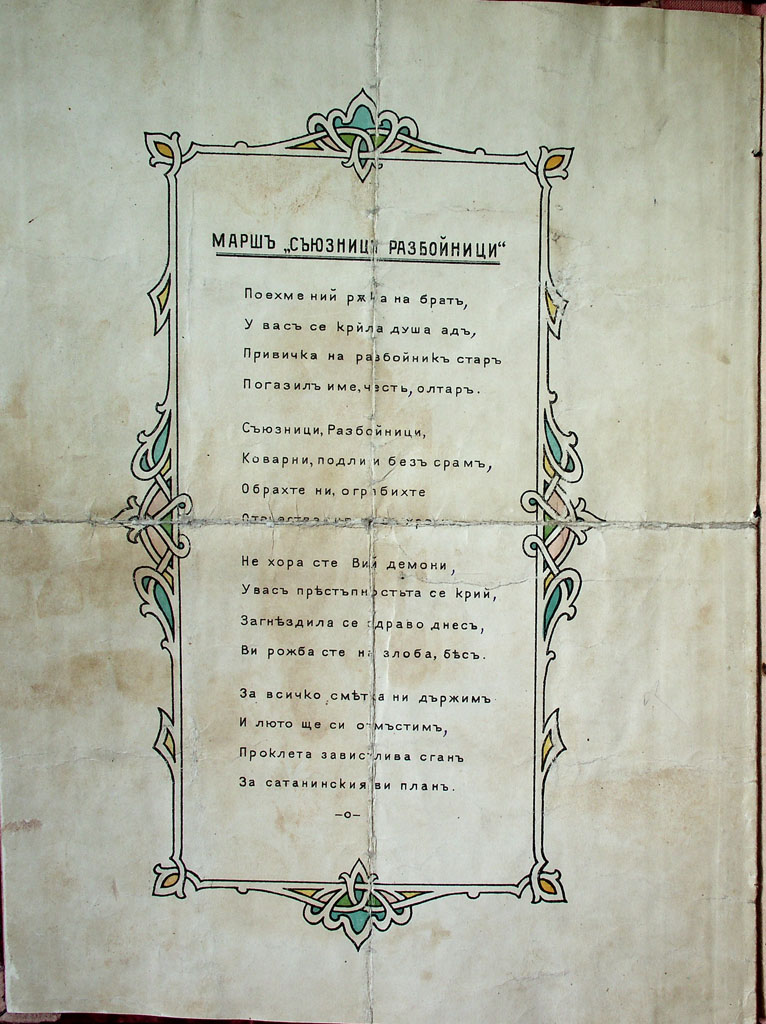 МАРШЪ „СЪЮЗНИЦИ РАЗБОЙНИЦИ“
Поехме ний рѫка на братъ,
У васъ се крила душа адъ,
Привичка на разбойникъ старъ
Погазилъ име, честь, олтаръ.
Съюзници, Разбойници,
Коварни, подли и безъ срамъ,
Обрахте ни, ограбихте
Не хора сте Вий демони,
У васъ прѣстѫпностьта се крий,
Загнѣздила се здраво днесъ,
Ви рожба сте на злоба, бѣсъ.
За всичко смѣтка ни държимъ
И люто ще си отмъстимъ,
Проклета завистлива сганъ
За сатанинския ви планъ.
—о—